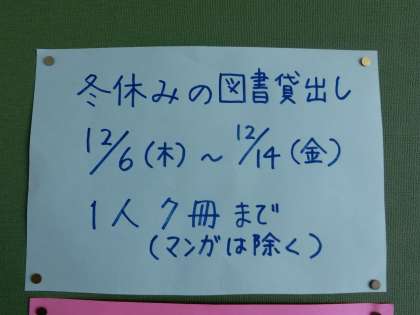 冬休みの図書貸出し
12/6(木)～12/14(金)
1人7冊まで
(マンガは除く)